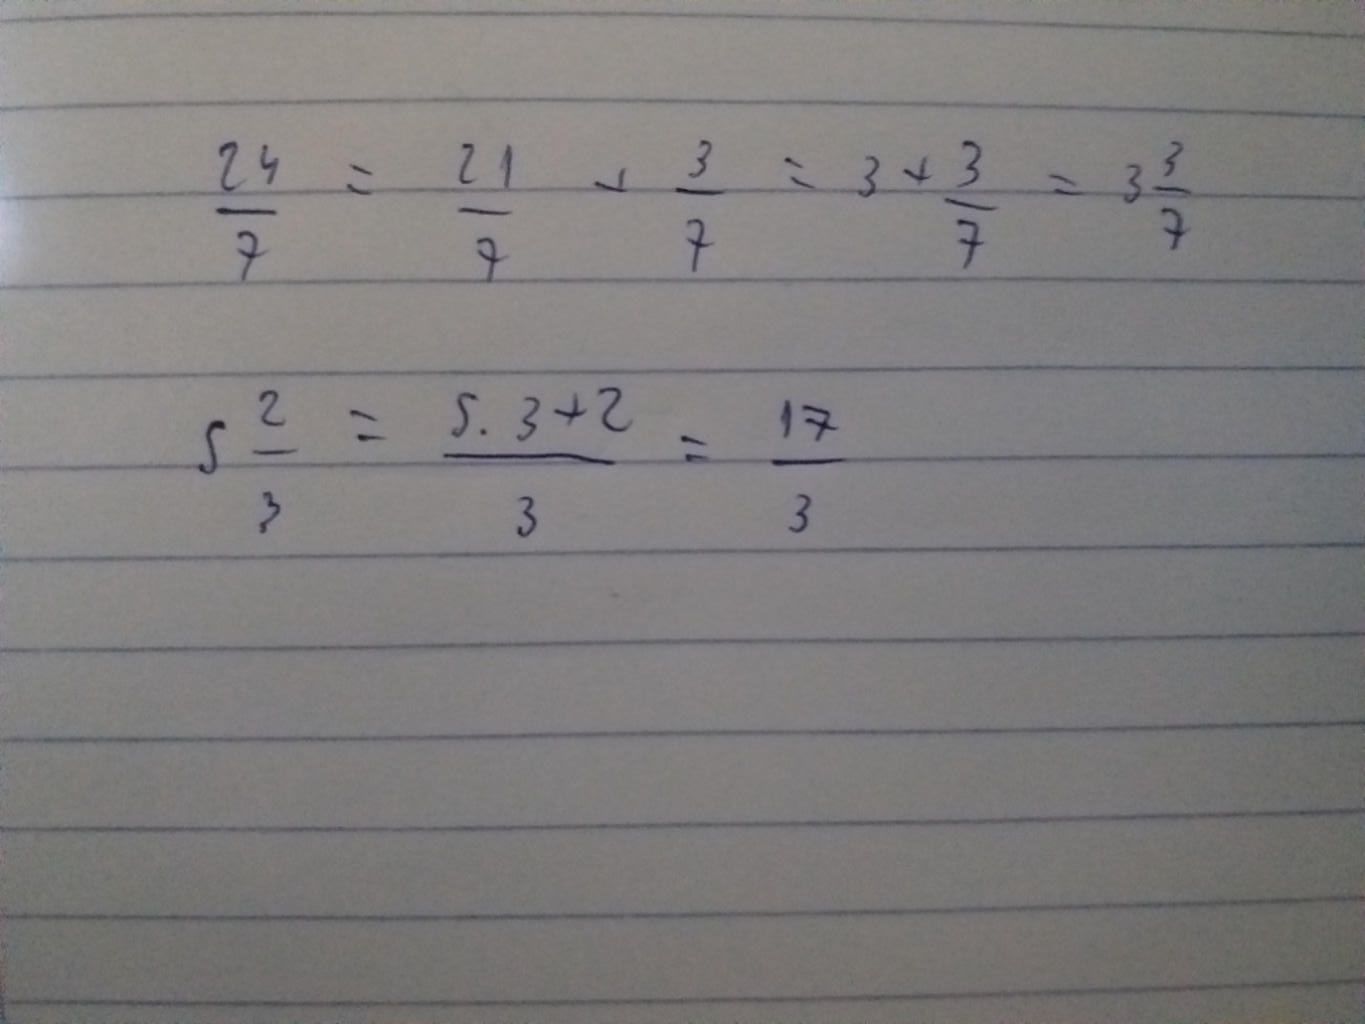 24/7 = 21/7 + 3/7 = 3 + 3/7 = 3 3/7
5 2/3 = 5.3+2/3 = 17/3